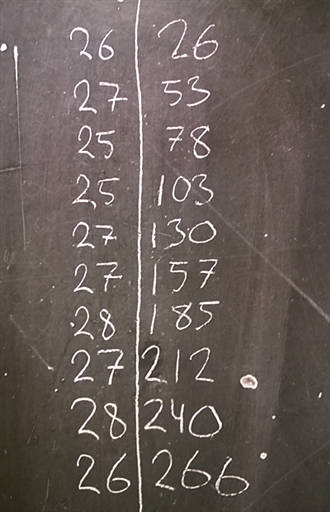 26 26
27 53
25 78
25 103
27 130
27 157
28 185
27 212
28 240
26 266